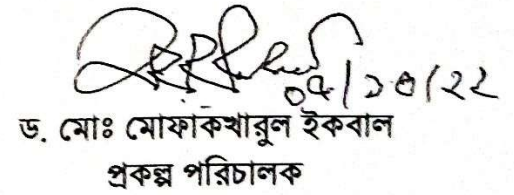 ০৫/১০/২২
ড. মোঃ মোফাকখারুল ইকবাল
প্রকল্প পরিচালক